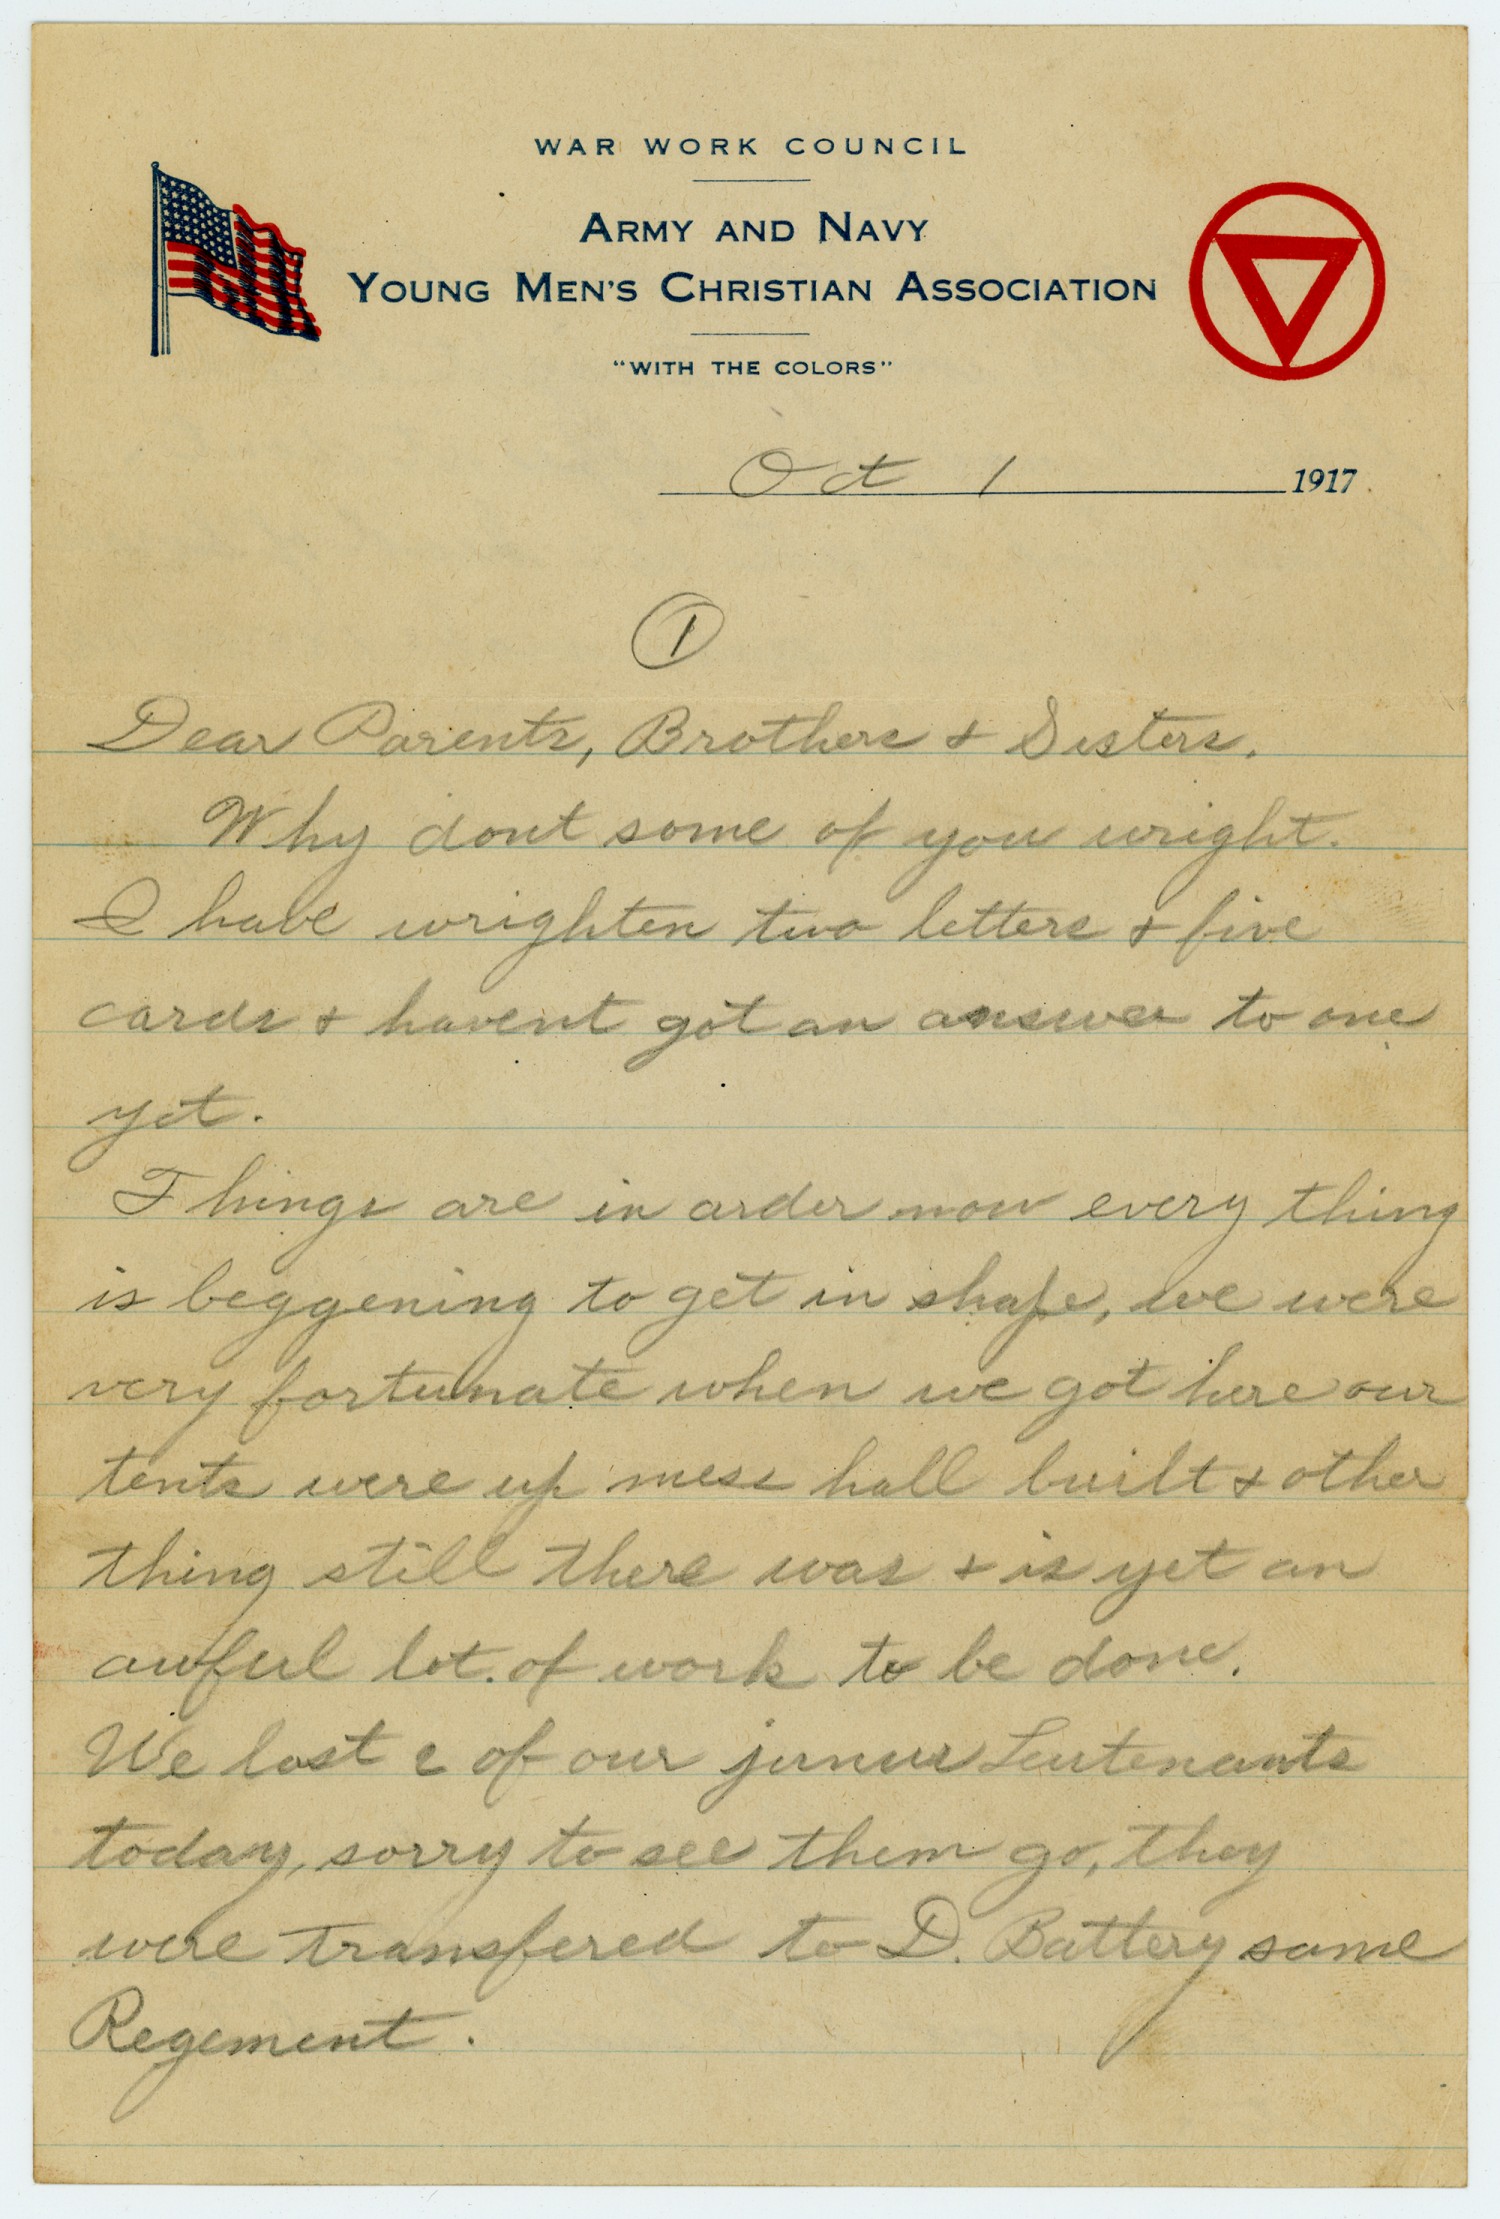 WAR WORK COUNCIL
ARMY AND NAVY
YOUNG MEN'S CHRISTIAN ASSOCIATION
"WITH THE COLORS"
Oct 1 1917
1
Dear Parents, Brothers & Sisters.
Why dont some of you wright.
I have wrighten two letters & five
cards & havent got an answer to one
yet.
Things are in order now every thing
is beggening to get in shape, we were
very fortunate when we got here our
tents were up mess hall built & other
thing still there was & is yet an
awful lot of work to be done.
We lost 2 of our junior Leutenants
today, sorry to see them go, they
were transfered to D. Battery same
Regement.